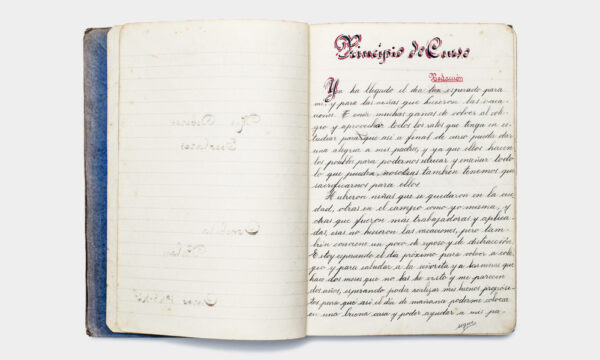 Principio de Curso
Redacción
Ya ha llegado el día tan esperado para
mi y para las niñas que hicieron las vaca-
ciones. Tenía muchas ganas de volver al cole-
gio y aprovechar todos los ratos que tenga en es-
tudiar para que asi a final de curso pueda dar
una alegria a mis padres, y ya que ellos hacen
los posible para podernos educar y enseñar todo
lo que pueden nosotras tambien tenemos que
sacrificarnos para ellos.
Hubieron niñas que se quedaron en la ciu-
dad, otras en el campo como yo misma, y
otras que fueron más trabajadoras y aplica-
das, esas no hicieron las vacaciones, pero tam-
bién conviene un poco de reposo y de distracción.
Estoy esperando el día próximo para volver a cole-
gio y para saludar a la señorita y a las niñas que
hace dos meses que no las he visto y me parecen
dos años, esperando poder realizar mis buenos proposi-
tos para que asi el día de mañana podamos colocar
en una buena casa y poder ayudar a mis pa-